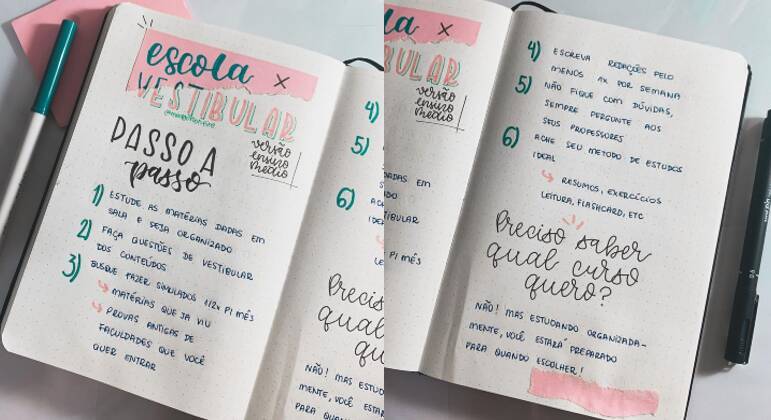 escola
X
VESTIBULAR
versão
ensino
médio
PASSO A
passo
1) ESTUDE AS MATÉRIAS DADAS EM
SALA E SEJA ORGANIZADO
2) FAÇA QUESTÕES DE VESTIBULAR
DOS CONTEÚDOS
3) BUSQUE FAZER SIMULADOS 1/2x P/ MÊS
MATÉRIAS QUE JÁ VIU
PROVAS ANTIGAS DE
FACULDADES QUE VOCÊ
QUER ENTRAR
4)
5)
6) AC
IDE
LE
Precis
qual
qu
NÃO! MAS ESTUD
MENTE, VOCÊ ESTAR
PARA QUAN
la
X
ULAR
versão
ensino
médio
DADAS EM
DO
TIBULAR
P/ MÊS
4) ESCREVA REDAÇÕES PELO
MENOS 1x POR SEMANA
5) NÃO FIQUE COM DÚVIDAS,
SEMPRE PERGUNTE AOS
SEUS PROFESSORES
6) ACHE SEU METODO DE ESTUDOS
IDEAL
RESUMOS, EXERCÍCIOS
LEITURA, FLASHCARD, ETC
Preciso saber
qual curso
quero?
NÃO! MAS ESTUDANDO ORGANIZADA-
MENTE, VOCÊ ESTARÁ PREPARADO
PARA QUANDO ESCOLHER!